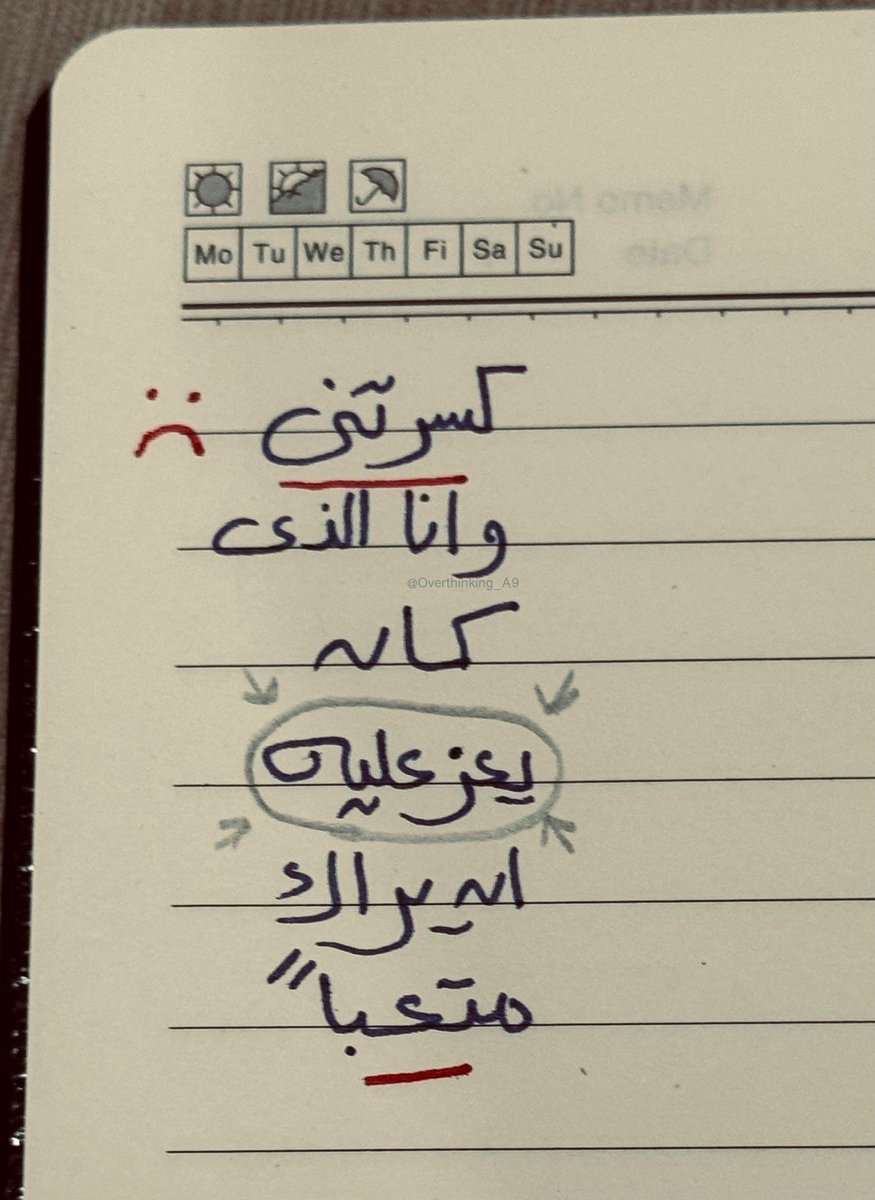 Memo No
Date
Mo Tu We Th Fi Sa Su
كسرتني
وانا الذي
@Overthinking_A9
كان
يعز عليه
ان يراك
متعباً